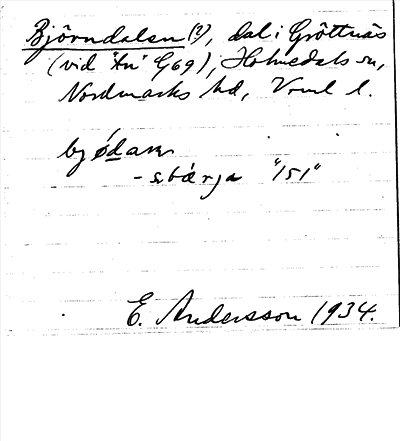 Björndalen (?), dal i Gröttnäs
(vid "An" G69), Holmedals sn,
Nordmarks hd, Vrml l.
bjødam
- stærja "151"
E. Andersson 1934.